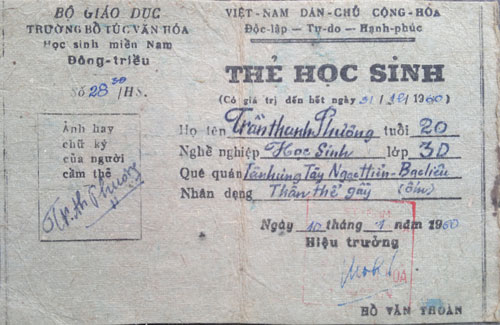 BỘ GIÁO DỤC
TRƯỜNG BỔ TÚC VĂN HÓA
Học sinh miền Nam
Đông-triều
Số 28 30 /HS.
Ảnh hay
chữ ký
của người
cầm thẻ
Tr.th Phương
VIỆT-NAM DÂN-CHỦ CỘNG-HÒA
Độc-lập — Tự-do — Hạnh-phúc
THẺ HỌC SINH
(Có giá trị đến hết ngày 31/12/1960)
Họ tên Trần thanh Phương tuổi 20
Nghề nghiệp Học Sinh lớp 3D
Quê quán Tân hưng Tây Ngọc Hiển - Bạc liêu
Nhân dạng Thân thể gầy (ốm)
Ngày 10 tháng 1 năm 1960
Hiệu trưởng
HỒ VĂN THOÀN